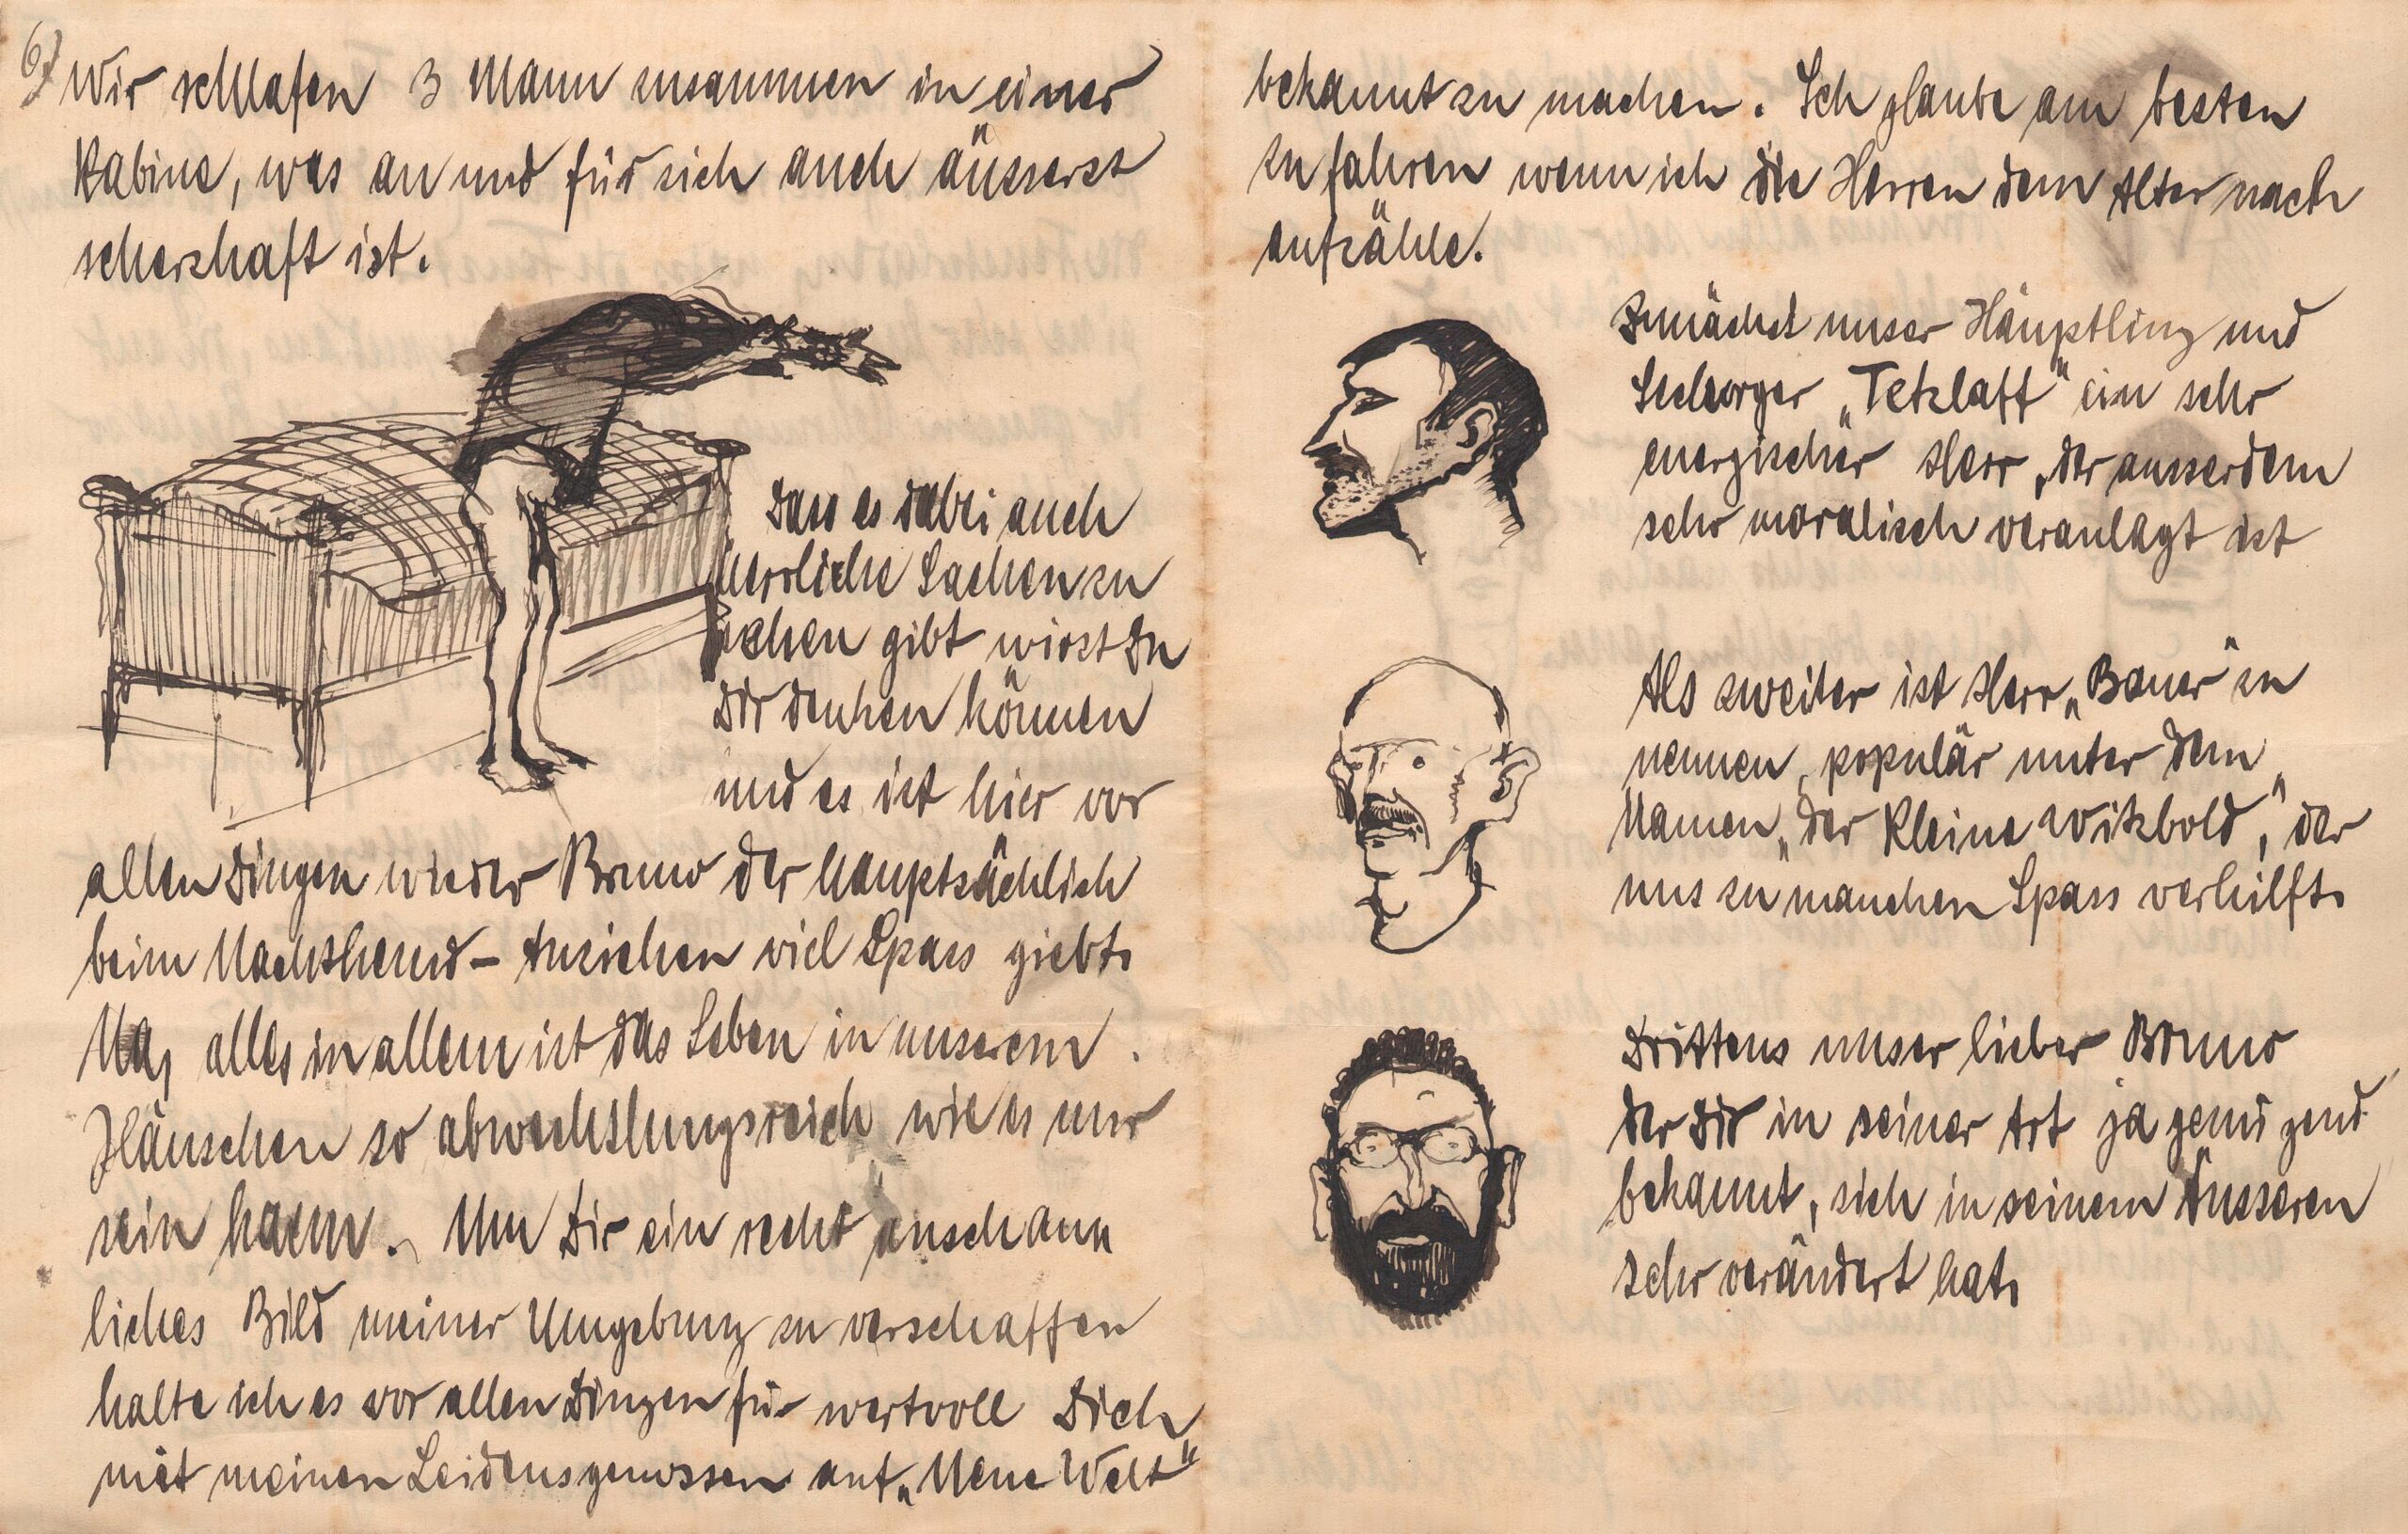 6)
Wir schlafen 3 Mann zusammen in einer
Kabine, was an und für sich auch äusserst
scherzhaft ist.
Dass es dabei auch
herrliche Sachen zu
sehen gibt wirst Du
Dir denken können
und es ist hier vor
allen Dingen wieder Bruno der hauptsächlich
beim Nachthemd-Anziehen viel Spass giebt.
Na, alles in allem ist das Leben in unserem
Häuschen so abwechslungsreich wie es nur
sein kann. Um Dir ein recht anschau
liches Bild meiner Umgebung zu verschaffen
halte ich es vor allen Dingen für wertvoll Dich
mit meinen Leidensgenossen auf „Neue Welt"
bekannt zu machen. Ich glaube am besten
zu fahren wenn ich die Herren dem Alter nach
aufzähle.
Zunächst unser Häuptling und
Seelsorger „Tetzlaff" ein sehr
energischer Herr, der ausserdem
sehr moralisch veranlagt ist
Als zweiter ist Herr „Bauer" zu
nennen, populär unter dem
Namen „der kleine Witzbold", der
uns zu manchen Spass verhilft.
Drittens unser lieber Bruno
der Dir in seiner Art ja genügend
bekannt, sich in seinem Äusseren
sehr verändert hat.